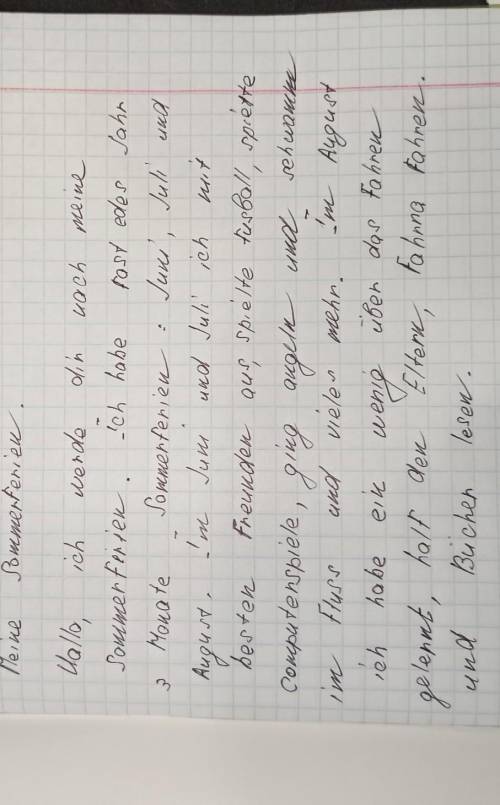 Meine Sommerferien.
Hallo, ich werde din nach meine
Sommerfirien. ich habe fast edes Jahr
3 Monate Sommerferien: Juni, Juli und
August. im Juni und Juli ich mit
besten Freunden aus, spielte fusball, spielte
Computenspiele, ging angeln und schwamm
im Fluss und vieles mehr. im August
ich habe ein wenig über das Fahren
gelernt, half den Eltern, Fahrra Fahren.
und Bücher lesen.